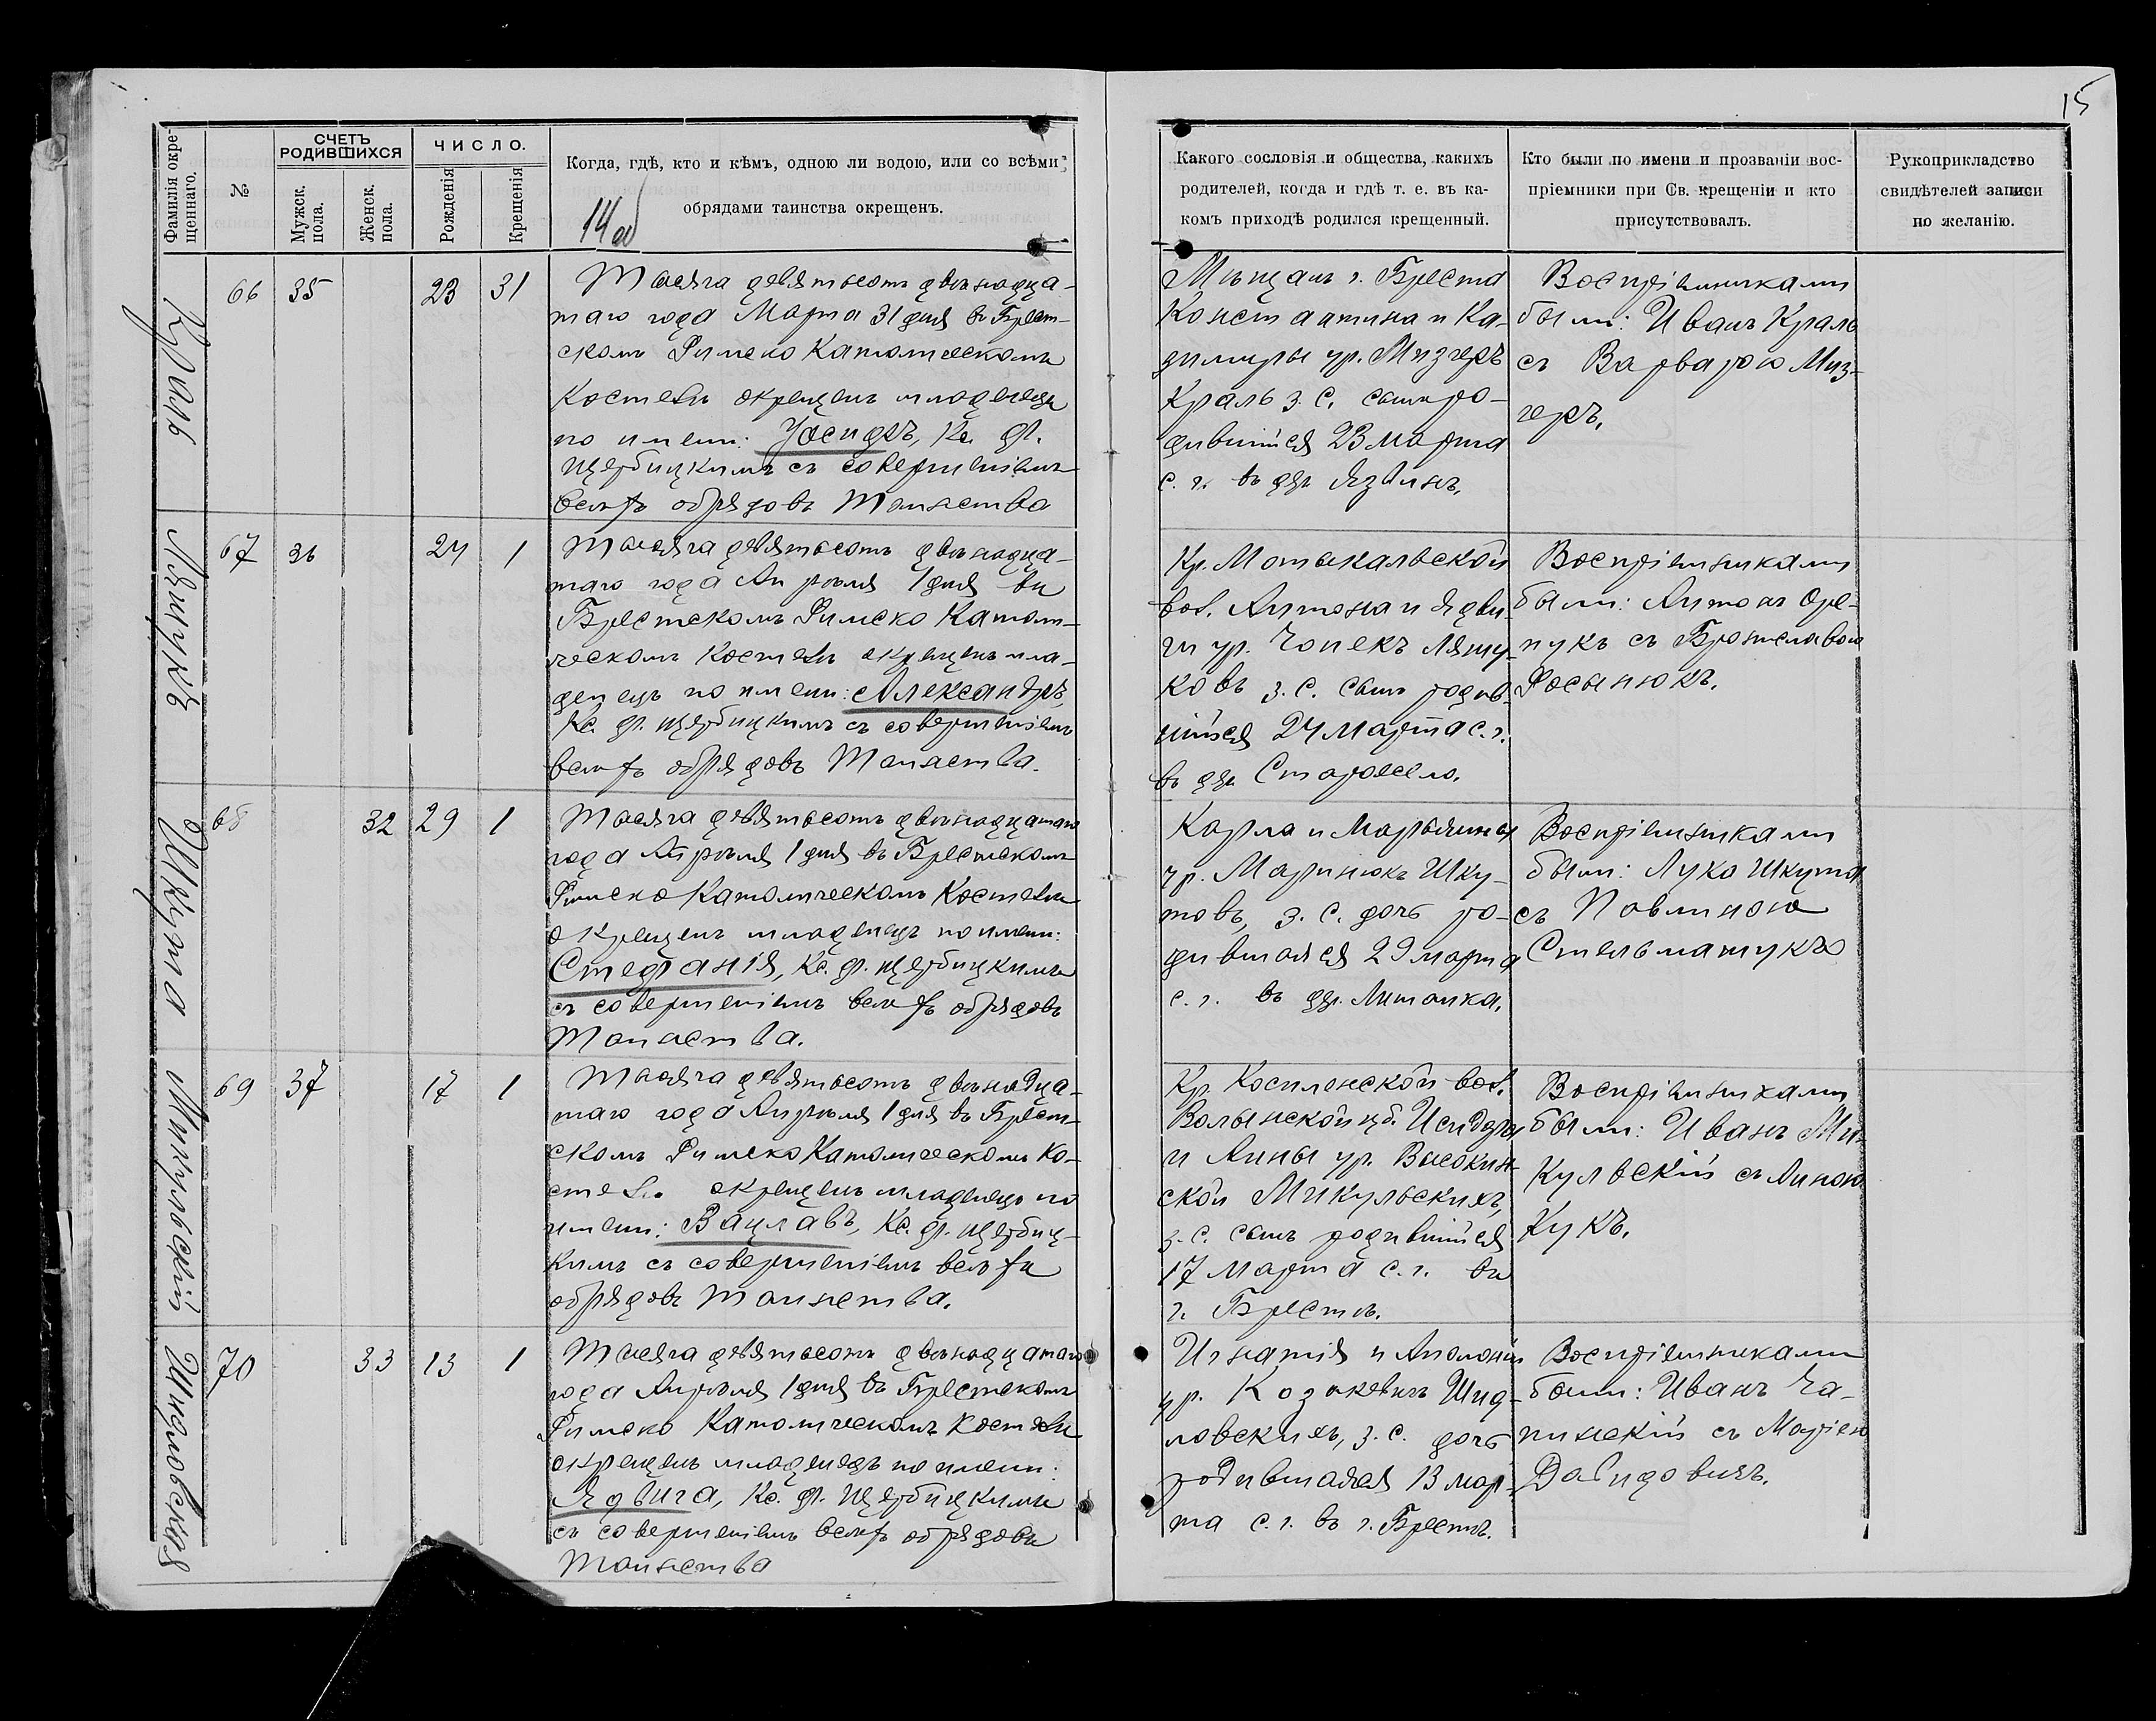 15
Фамилія окре-
щеннаго.
№
СЧЕТЪ
РОДИВШИХСЯ
Мужск.
пола.
Женск.
пола.
ЧИСЛО.
Рожденія
Крещенія
Когда, гдѣ, кто и кѣмъ, одною ли водою, или со всѣми
обрядами таинства окрещенъ.
14об
Какого сословія и общества, какихъ
родителей, когда и гдѣ т. е. въ ка-
комъ приходѣ родился крещенный.
Кто были по имени и прозваніи вос-
пріемники при Св. крещеніи и кто
присутствовалъ.
Рукоприкладство
свидѣтелей записи
по желанію.
Краль
66 35 23 31
Тысяча девятьсотъ двѣнадца-
таго года Марта 31 дня въ Брест-
скомъ Римско Католическомъ
Костелѣ окрещенъ младенецъ
по имени: Юсифъ, Кс. Ф.
Щербицкимъ съ совершеніемъ
всѣхъ обрядовъ Таинства
Мѣщанъ г. Бреста
Константина и Ка-
зимиры ур. Мизгеръ
Краль з. с. сынъ ро-
дившійся 23 марта
с. г. въ дер. Язвинъ.
Воспріемниками
были: Иванъ Краль
съ Варварою Миз-
геръ.
Ляшукъ
67 36 24 1
Тысяча девятьсотъ двѣнадца-
таго года Апрѣля 1 дня въ
Брестскомъ Римско Католи-
ческомъ Костелѣ окрещенъ мла-
денецъ по имени: Александръ,
Кс. Ф. Щербицкимъ съ совершеніемъ
всѣхъ обрядовъ Таинства.
Кр. Мотыкальской
вол. Антона и Ядви-
ги ур. Чопекъ Ляшу-
ковъ з. с. сынъ родив-
шійся 24 марта с. г.
въ дер. Старосело.
Воспріемниками
были: Антонъ Оре-
пукъ съ Брониславою
Фосынюкъ.
Шкута
68 32 29 1
Тысяча девятьсотъ двѣнадцатаго
года Апрѣля 1 дня въ Брестскомъ
Римско Католическомъ Костелѣ
окрещенъ младенецъ по имени:
Стефанія, Кс. Ф. Щербицкимъ
съ совершеніемъ всѣхъ обрядовъ
Таинства.
Карла и Марьянны
ур. Маринюкъ Шку-
товъ, з. с. дочь ро-
дившаяся 29 марта
с. г. въ дер. Литовка.
Воспріемниками
были: Лука Шкута
съ Павлиною
Стельмашукъ
Микульскій
69 37 17 1
Тысяча девятьсотъ двѣнадца-
таго года Апрѣля 1 дня въ Брест-
скомъ Римско Католическомъ Ко-
стелѣ окрещенъ младенецъ по
имени: Вацлавъ, Кс. Ф. Щербиц-
кимъ съ совершеніемъ всѣхъ
обрядовъ Таинства.
Кр. вол.
Волынской губ. Исидора
и Анны ур. Высокин-
ской Микульскихъ,
з. с. сынъ родившійся
17 Марта с. г. въ
г. Брестѣ.
Воспріемниками
были: Иванъ Ми-
кульскій съ Анною
Кукъ.
Шидловская
70 33 13 1
Тысяча девятьсотъ двѣнадцатаго
года Апрѣля 1 дня въ Брестскомъ
Римско Католическомъ Костелѣ
окрещенъ младенецъ по имени:
Ядвига, Кс. Ф. Щербицкимъ
съ совершеніемъ всѣхъ обрядовъ
Таинства
Игнатія и Аполоніи
ур. Козакевичъ Шид-
ловскихъ, з. с. дочь
родившаяся 13 мар-
та с. г. въ г. Брестѣ.
Воспріемниками
были: Иванъ Ча-
пинскій съ Маріею
Давидовичъ.